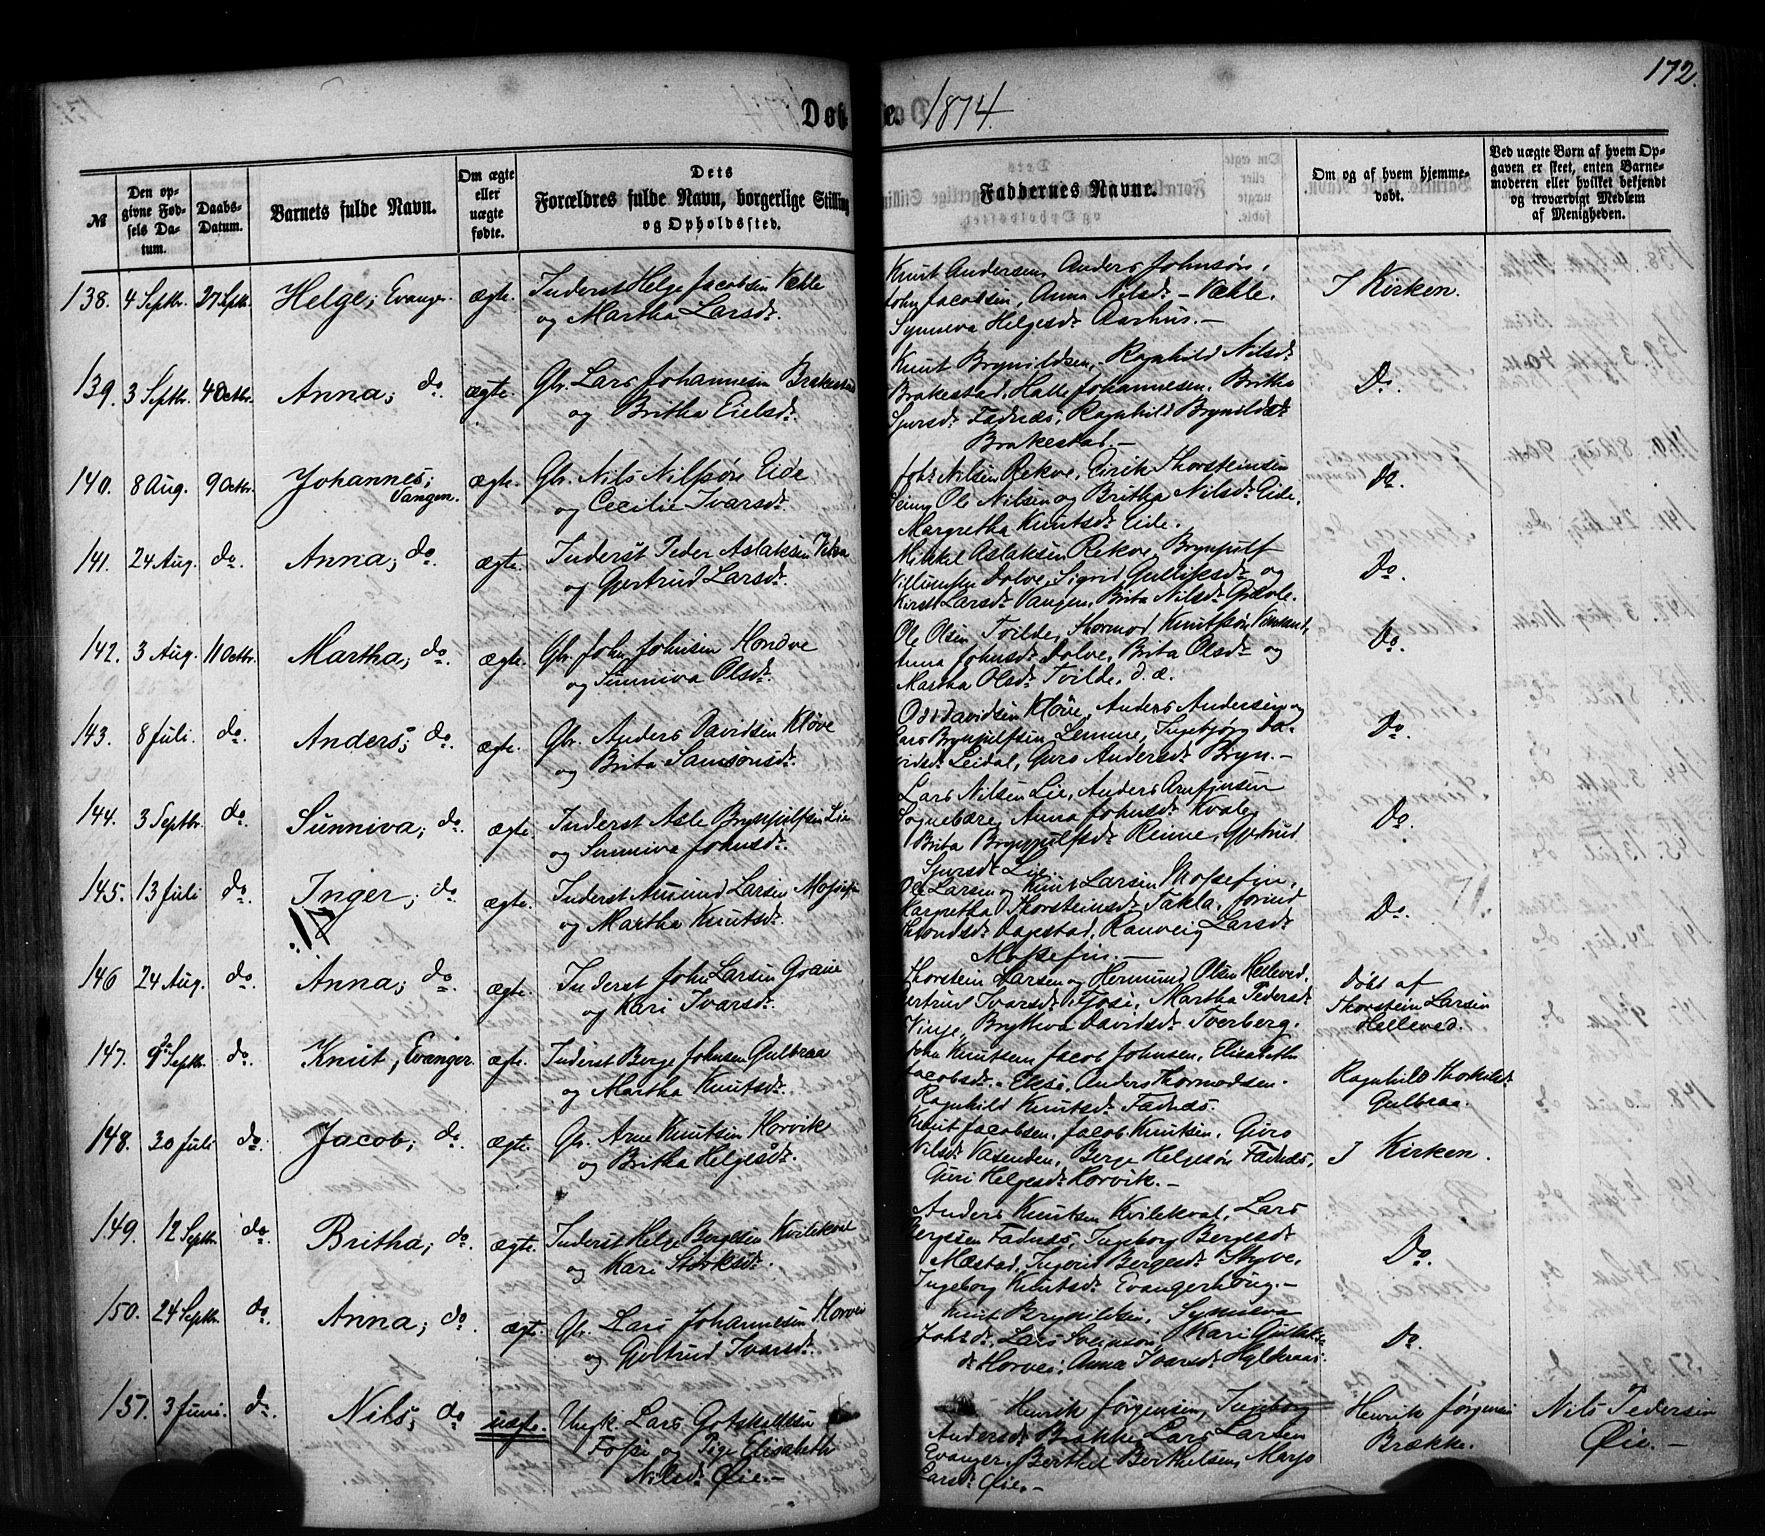 172.
Døbte. 1874.
№
Den opgivne Fødsels Datum.
Daabs-Datum.
Barnets fulde Navn.
Om ægte eller uægte fødte.
Dets Forældres fulde Navn, borgerlige Stilling og Opholdssted.
Faddernes Navne.
Om og af hvem hjemmedøbt.
Ved uægte Børn af hvem Opgaven er skeet, enten Barnemoderen eller hvilket bekjendt og troværdigt Medlem af Menigheden.
138. 4 Septbr. 27 Sptb. Helge; Evanger. ægte. Inderst Helge Jacobsen Væhle
og Martha Larsdr.
Knut Andersen, Anders Johnsøn,
John Jacobsen, Anna Nilsdr – Væhle.
Synneva Helgesdr Aarhus. –
I Kirken.
139. 3 Septbr. 4 Octbr. Anna; do. ægte. Gbr. Lars Johannesen Brakestad
og Britha Eielsdr.
Knut Brynildsen, Ragnhild Nilsdr
Brakestad, Halle Johannesen, Britha
Sjursdr Fadnæs, Ragnhild Brynildsdr
Brakestad. –
Do.
140. 8 Aug. 9 Octbr. Johannes; Vangen. ægte. Gbr. Nils Nilssøn Eide
og Cecilie Ivarsdr.
Johs Nilsen Rekve, Eirik Thorsteinsen
Ole Nilsen og Britha Nilsdr Eide,
Margretha Knutsdr Eide.
Do.
141. 24 Aug. do. Anna; do. ægte. Inderst Peder Aslaksen
og Gjertrud Larsdr.
Mikkel Aslaksen Rekve, Brynjulf
Dolve, Sigrid Gulliksdr og
Kirsti Larsdr Vangen, Brita Nilsdr Gjøvle.
Do.
142. 3 Aug. 11 Octbr. Martha; do. ægte. Gbr. John Johnsen Hondve
og Sunniva Olsdr.
Ole Olsen Tvilde, Thormod Knutsøn
Anna Johnsdr Dolve, Brita Olsdr og
Martha Olsdr Tvilde, d. æ.
Do.
143. 8 Juli. do. Anders; do. ægte. Gbr. Anders Davidsen Kløve
og Brita Samsonsdr.
Davidsen Kløve, Anders Andersen og
Lars Brynjulfsen Lemme, Ingebjørg Da-
vidsdr Leidal, Guro Andersdr Bryn. –
Do.
144. 3 Septbr. do. Sunniva; do. ægte. Inderst Asle Brynjulfsen Lie
og Sunniva Johnsdr.
Lars Nilsen Lie, Anders Arnfinsen
Sognebære, Anna Johnsdr Kvale,
Brita Brynjulfsdr Renne, Gjertrud
Sjursdr Lie. –
Do.
145. 13 Juli do. Inger; do. ægte. Inderst Amund Larsen Mossefin
og Martha Knutsdr.
17
Ole Larsen og Knut Larsen Mossefin,
Margretha Thorsteinsdr Takla, Jorind
Throndsdr Dagestad, Ranveig Larsdr
Mossefin. –
Do.
146 24 Aug. do. Anna; do. ægte. Inderst John Larsen Graue
og Kari Ivarsdr.
Thorstein Larsen og Hermund Olsen Helleved,
Gertrud Ivarsdr Gjøsi, Martha Pedersdr
Vinje, Brytteva Davidsdr Tverberg.
Døbt af
Thorstein Larsen
Helleved.
147. 9 Septbr. do. Knut, Evanger. ægte. Inderst Berge Johnsen Gulbraa
og Martha Knutsdr.
John Knutsen, Jacob Johnsen, Elisabeth
Jacobsdr – Eksi, Anders Thormodsen.
Ragnhild Knutsdr Fadnæs.
Ragnhild Thorkilsdr
Gulbraa.
148. 30 Juli do. Jacob; do. ægte. Gbr. Arne Knutsen Horvik
og Britha Helgesdr.
Knut Jacobsen, Jacob Knutsen, Guro
Nilsdr Vasenden, Berge Helgesøn Fadnæs,
Guri Helgesdr Horvik. –
I Kirken.
149. 12 Septbr do. Britha; do. ægte. Inderst Helge Bergesen Kvilekval
og Kari Størksdr.
Anders Knutsen Kvilekval, Lars
Bergesen Fadnæs, Ingeborg Bergesdr
Mæstad, Ingerid Bergesdr Styve,
Ingeborg Knutsdr Evangerhoug. –
Do.
150. 24 Septbr. do. Anna; do. ægte. Gbr. Lars Johannesen Horvei
og Gjertrud Ivarsdr.
Knut Brynildsen, Synneva
Johsdr, Lars Svensøn, Kari Gulleiks-
dr Horvei, Anna Ivarsdr Hyldraas.
Do.
151. 3 Juni. do. Nils; do uægte. Ungk. Lars Gotskalksen
Fosse og Pige Elisabeth
Nilsdr Øie. –
Henrik Jørgensen, Ingeborg
Andersdr Brække, Lars Larsen
Evanger, Berthel Berthelsen, Marjo
Larsdr Øie. –
Henrik Jørgensen
Brække.
Nils Pedersen
Øie. –